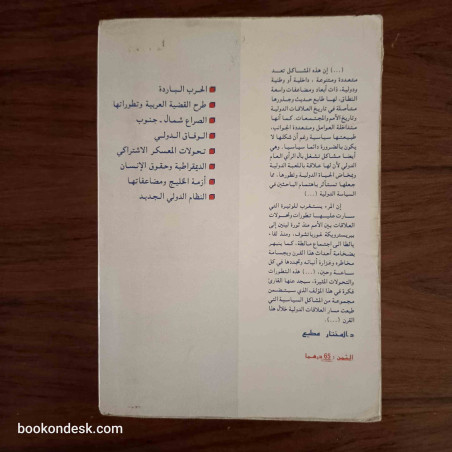 الحرب الباردة
طرح القضية العربية وتطوراتها
الصراع شمال - جنوب
الوفاق الدولي
تحولات المعسكر الاشتراكي
الديمقراطية وحقوق الإنسان
أزمة الخليج ومضاعفاتها
النظام الدولي الجديد
(...) إن هذه المشاكل تعد
متعددة ومتنوعة، داخلية أو وطنية
ودولية، ذات أبعاد ومضاعفات واسعة
النطاق، لها طابع حديث وجذورها
متأصلة في تاريخ العلاقات الدولية
وتاريخ الأمم والمجتمعات. كما أنها
متداخلة العوامل ومتعددة الجوانب،
طبيعتها سياسية رغم أن شكلها لا
يكون بالضرورة دائما سياسيا. وهي
أيضا مشاكل تشغل بال الرأي العام
الدولي لأن لها علاقة باللعبة الدولية
وبمخاض الحياة الدولية وتطورها، مما
جعلها تستأثر باهتمام الباحثين في
السياسة الدولية (...)
إن المرء يستغرب للوتيرة التي
سارت عليها تطورات وتحولات
العلاقات بين الأمم منذ ثورة لينين إلى
بيريسترويكة غورباتشوف، ومنذ لقاء
يالطا إلى اجتماع مالطة. كما ينبهر
بضخامة أحداث هذا القرن وبجسامة
مخاطره وغزارة أنبائه وتجددها في كل
ساعة وحين. (...) هذه التطورات
والتحولات المثيرة، سيجد عنها القارئ
فكرة في هذا المؤلف الذي سيتضمن
مجموعة من المشاكل السياسية التي
طبعت مسار العلاقات الدولية خلال هذا
القرن (...)
د. المختار مطيع
الثمن : 65 درهما
bookondesk.com